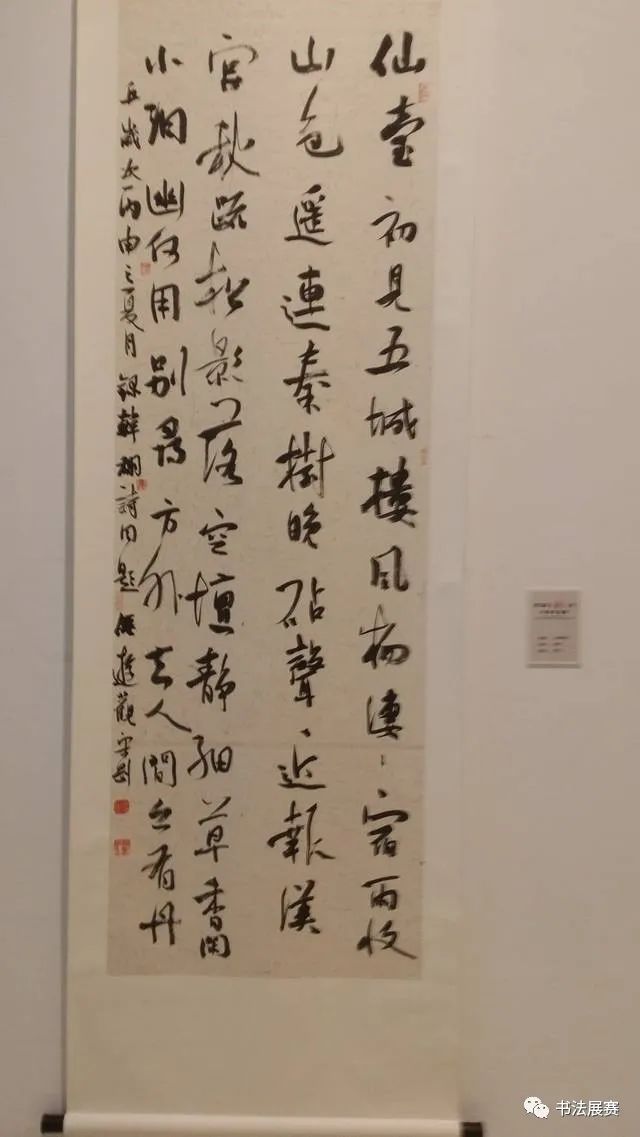 仙臺初見五城樓風物淒〻宿雨收
山色遥連秦樹晚砧聲近報漢
宮秋疏松影落空壇靜細草香閑
小洞幽何用別尋方外去人間亦有丹
丘歲次丙申之夏月録韓翃詩同題仙遊觀
书法展赛